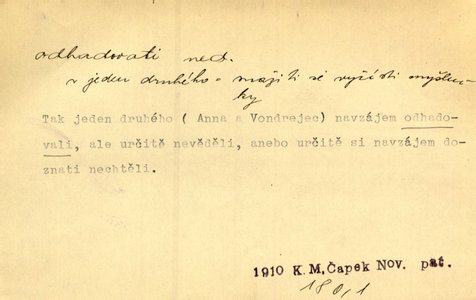 odhadovati ned.
v jeden druhého = snažiti se vyčísti myšlen-
ky
Tak jeden druhého ( Anna a Vondrejec) navzájem odhado-
vali, ale určitě nevěděli, anebo určitě si navzájem do-
znati nechtěli.
1910 K. M. Čapek Nov. pat.
180,1